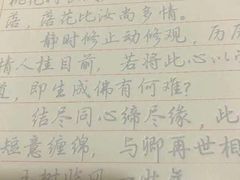 落，落花比汝尚多情。
静时修止动修观，历历
情人挂目前，若将此心
道，即生成佛有何难？
结尽同心缔尽缘，此
短意缠绵，与卿再世相